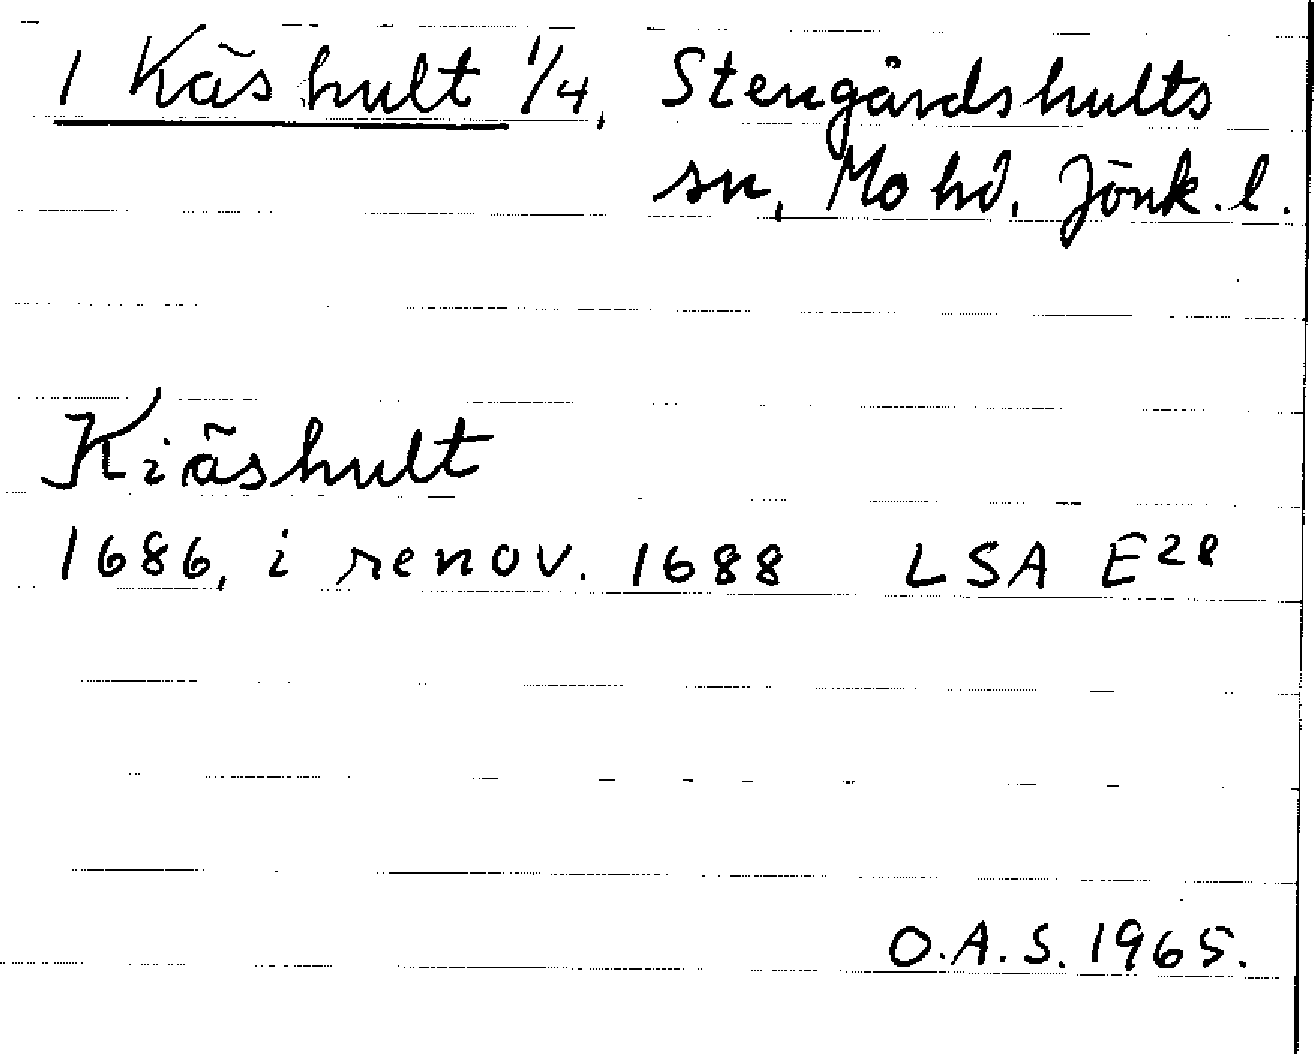 1 Käshult 1/4, Stengårdshults
sn, Mo hd, Jönk. l.
Kiäshult
1686, i renov. 1688 LSA E28
O.A.S. 1965.